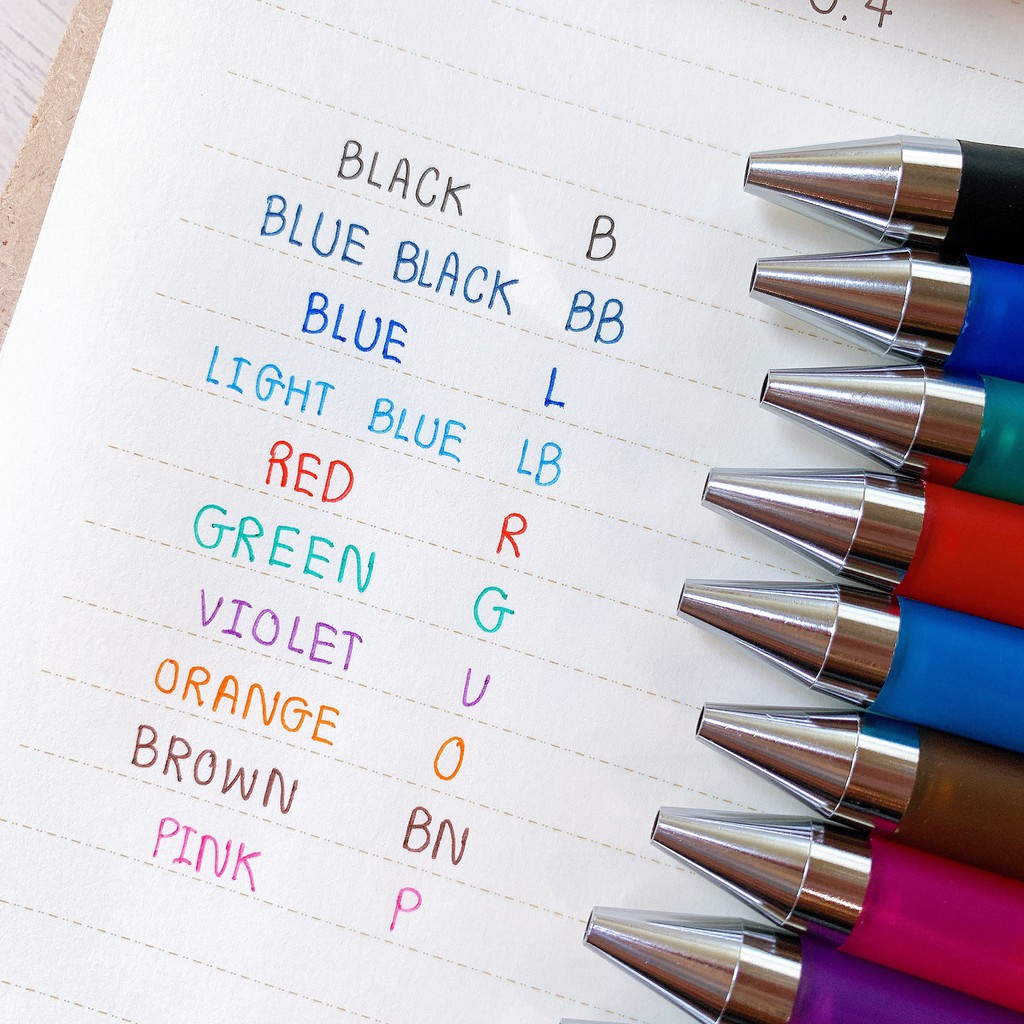 0.4
BLACK B
BLUE BLACK BB
BLUE L
LIGHT BLUE LB
RED R
GREEN G
VIOLET V
ORANGE O
BROWN BN
PINK P